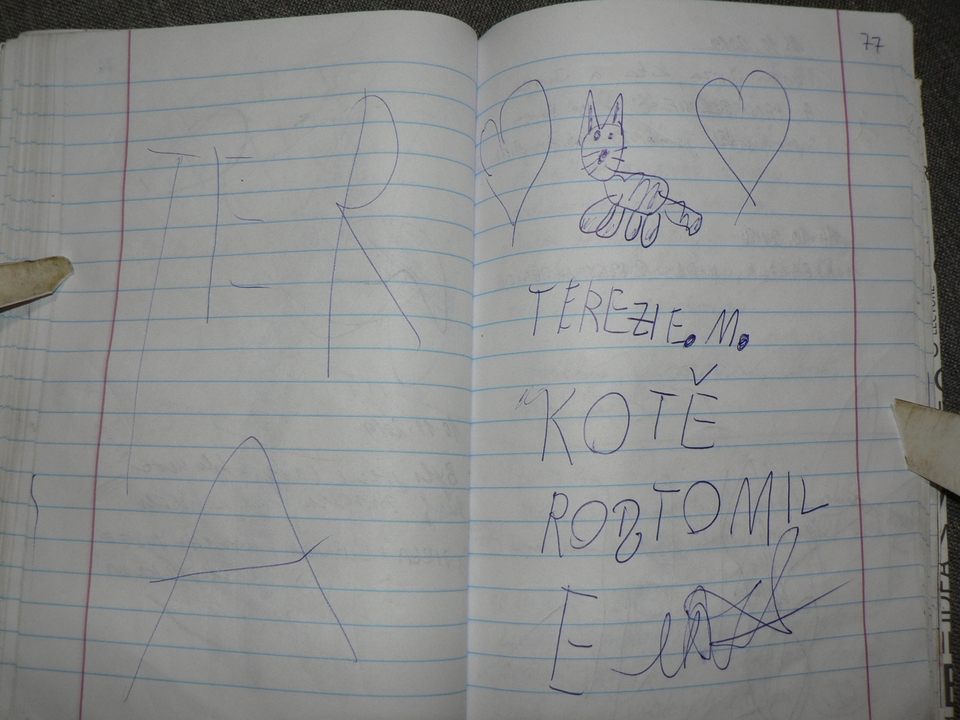 TER
A
77
TEREZIE. M.
KOTĚ
ROBTOMIL
E